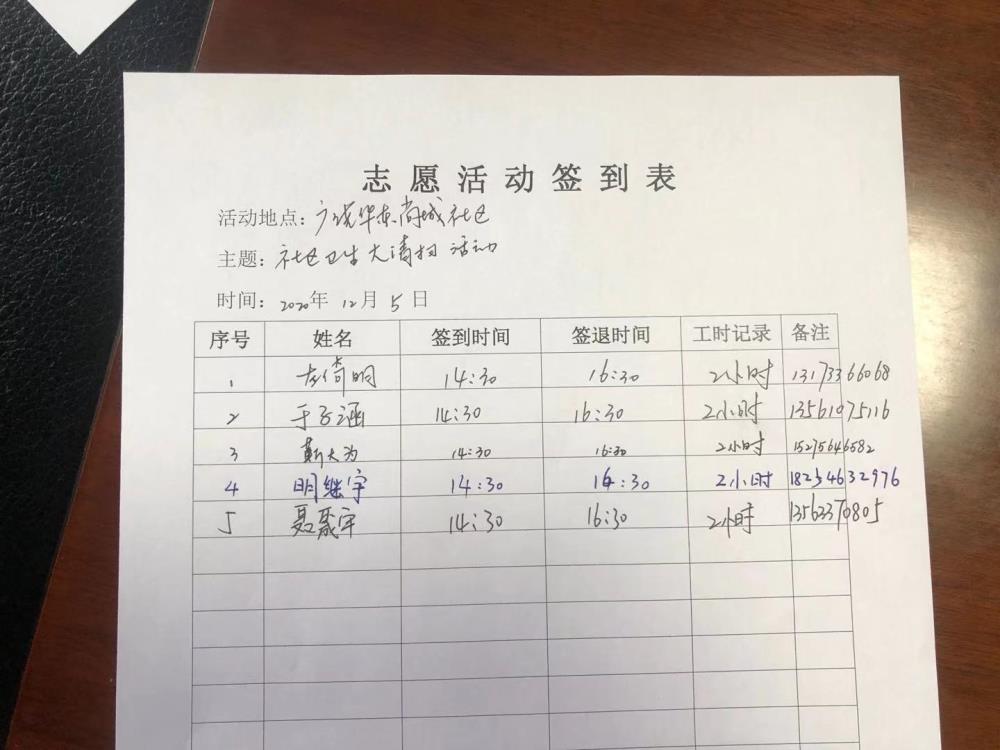 志愿活动签到表
活动地点：广饶华泰尚城社区
主题：社区卫生大清扫活动
时间：2020年 12月 5 日
序号 姓名 签到时间 签退时间 工时记录 备注
1 倚明 14:30 16:30 2小时 13173366068
2 于子涵 14:30 16:30 2小时 13561075116
3 靳大为 14:30 16:30 2小时 15275646582
4 明继宇 14:30 16:30 2小时 18254632976
5 聂聚宇 14:30 16:30 2小时 13563370805